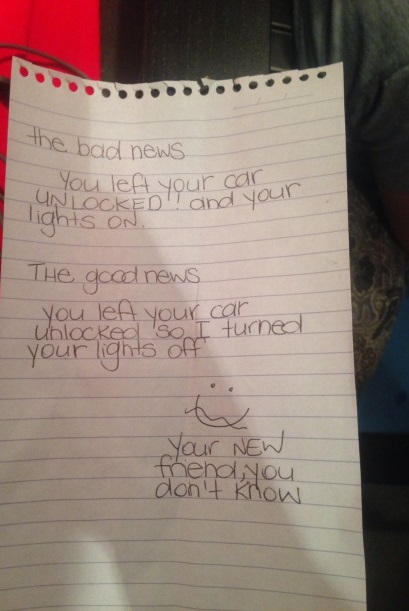 the bad news
You left your car
UNLOCKED!! and your
lights ON.
THE good news
you left your car
unlocked so I turned
your lights off
your NEW
friend, you
don't know